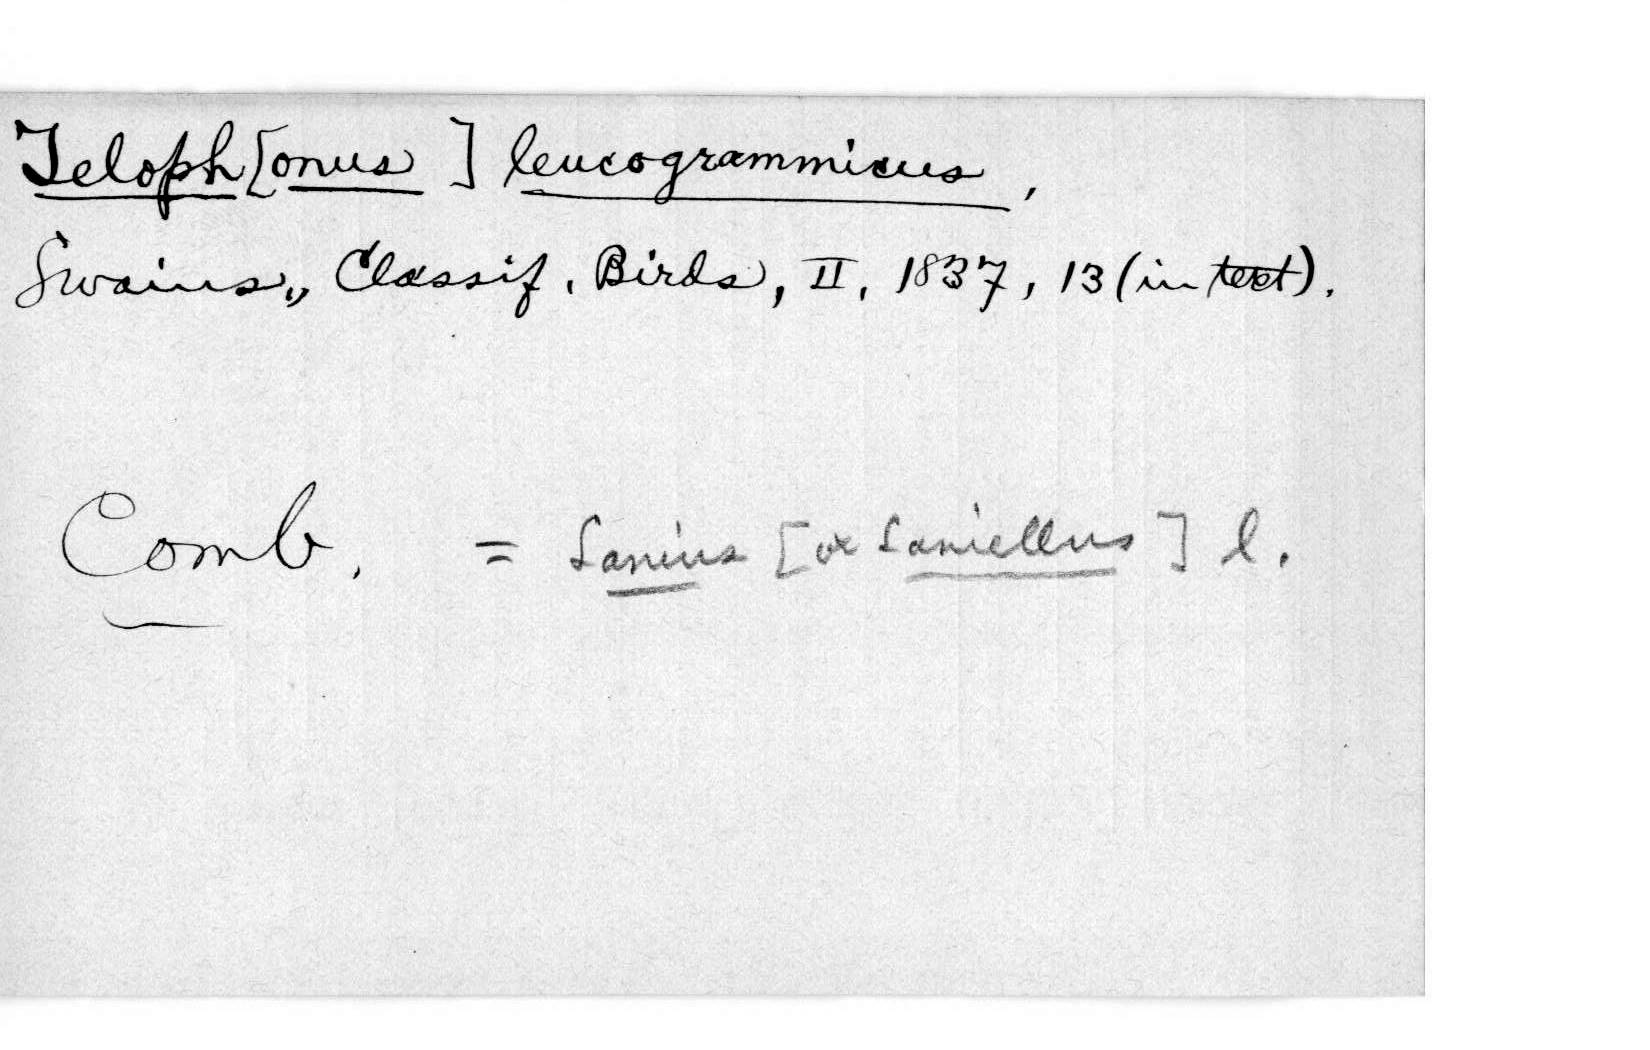 Teloph[onus ] leucogrammicus,
Swains., Classif. Birds, II, 1837, 13 (in text).
Comb. = Lanius [or Laniellus] l.